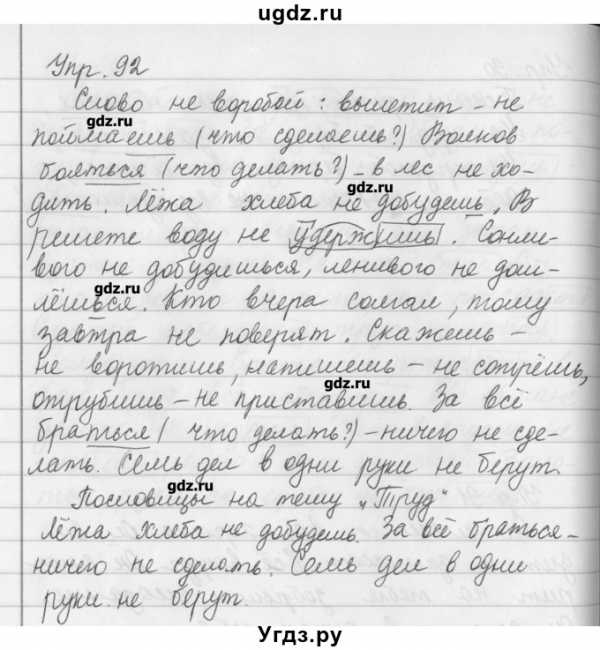 ugdz.ru
Упр. 92
Слово не воробей: вылетит – не
gdz.ru
поймаешь (что сделаешь?) Волков
бояться (что делать?) – в лес не хо-
gdz.ru
дить. Лёжа хлеба не добудешь. В
решете воду не удержишь. Сонли-
вого не добудишься, ленивого не дош-
gdz.ru
лёшься. Кто вчера солгал, тому
завтра не поверят. Скажешь –
не воротишь, напишешь – не сотрёшь,
gdz.ru
отрубишь – не приставишь. За всё
браться (что делать?) – ничего не сде-
лать. Семь дел в одни руки не берут.
gdz.ru
Пословицы на тему „Труд"
Лёжа хлеба не добудешь. За всё браться –
ничего не сделать. Семь дел в одни
руки не берут.
Угдз.ру